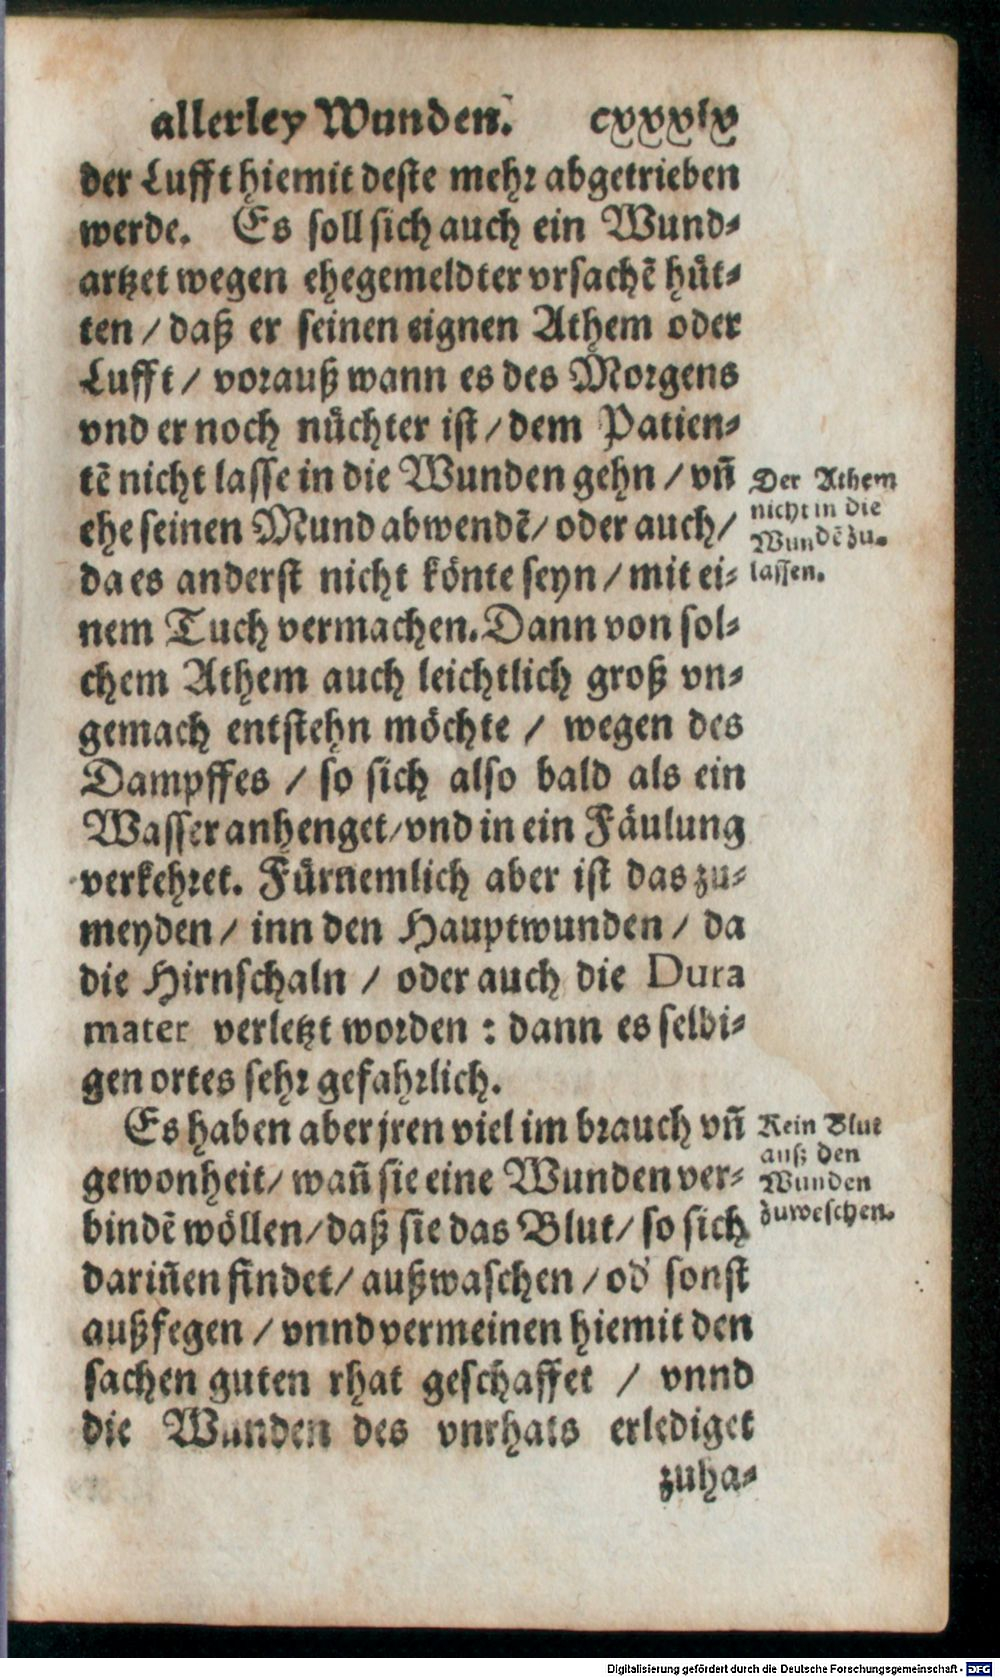 allerley Wunden. cxxxix
der Lufft hiemit deste mehr abgetrieben
werde. Es soll sich auch ein Wund⸗
artzet wegen ehegemeldter vrsachẽ hüt⸗
ten / daß er seinen eignen Athem oder
Lufft / vorauß wann es des Morgens
vnd er noch nüchter ist / dem Patien⸗
tẽ nicht lasse in die Wunden gehn / vñ
ehe seinen Mund abwendẽ / oder auch /
da es anderst nicht könte seyn / mit ei⸗
nem Tuch vermachen. Dann von sol⸗
chem Athem auch leichtlich groß vn⸗
gemach entstehn möchte / wegen des
Dampffes / so sich also bald als ein
Wasser anhenget / vnd in ein Fäulung
verkehret. Fürnemlich aber ist das zu⸗
meyden / inn den Hauptwunden / da
die Hirnschaln / oder auch die Dura
mater verletzt worden : dann es selbi⸗
gen ortes sehr gefahrlich.
Der Athem
nicht in die
Wundẽ zu⸗
lassen.
Es haben aber jren viel im brauch vñ
gewonheit / wañ sie eine Wunden ver⸗
bindẽ wöllen / daß sie das Blut / so sich
dariñen findet / außwaschen / od' sonst
außfegen / vnnd vermeinen hiemit den
sachen guten rhat geschaffet / vnnd
die Wunden des vnrhats erlediget
zuha⸗
Kein Blut
auß den
Wunden
zuweschen.
Digitalisierung gefördert durch die Deutsche Forschungsgemeinschaft - DFG